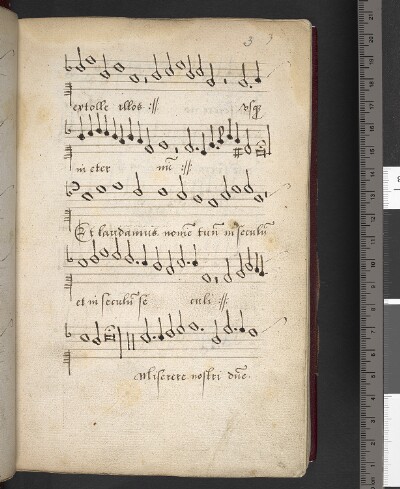 3 3
extolle illos :// usq3
in eter nũ ://
Et laudamus nomẽ tuũ in seculũ
et in seculũ se culi ://
Miserere nostri dñe.